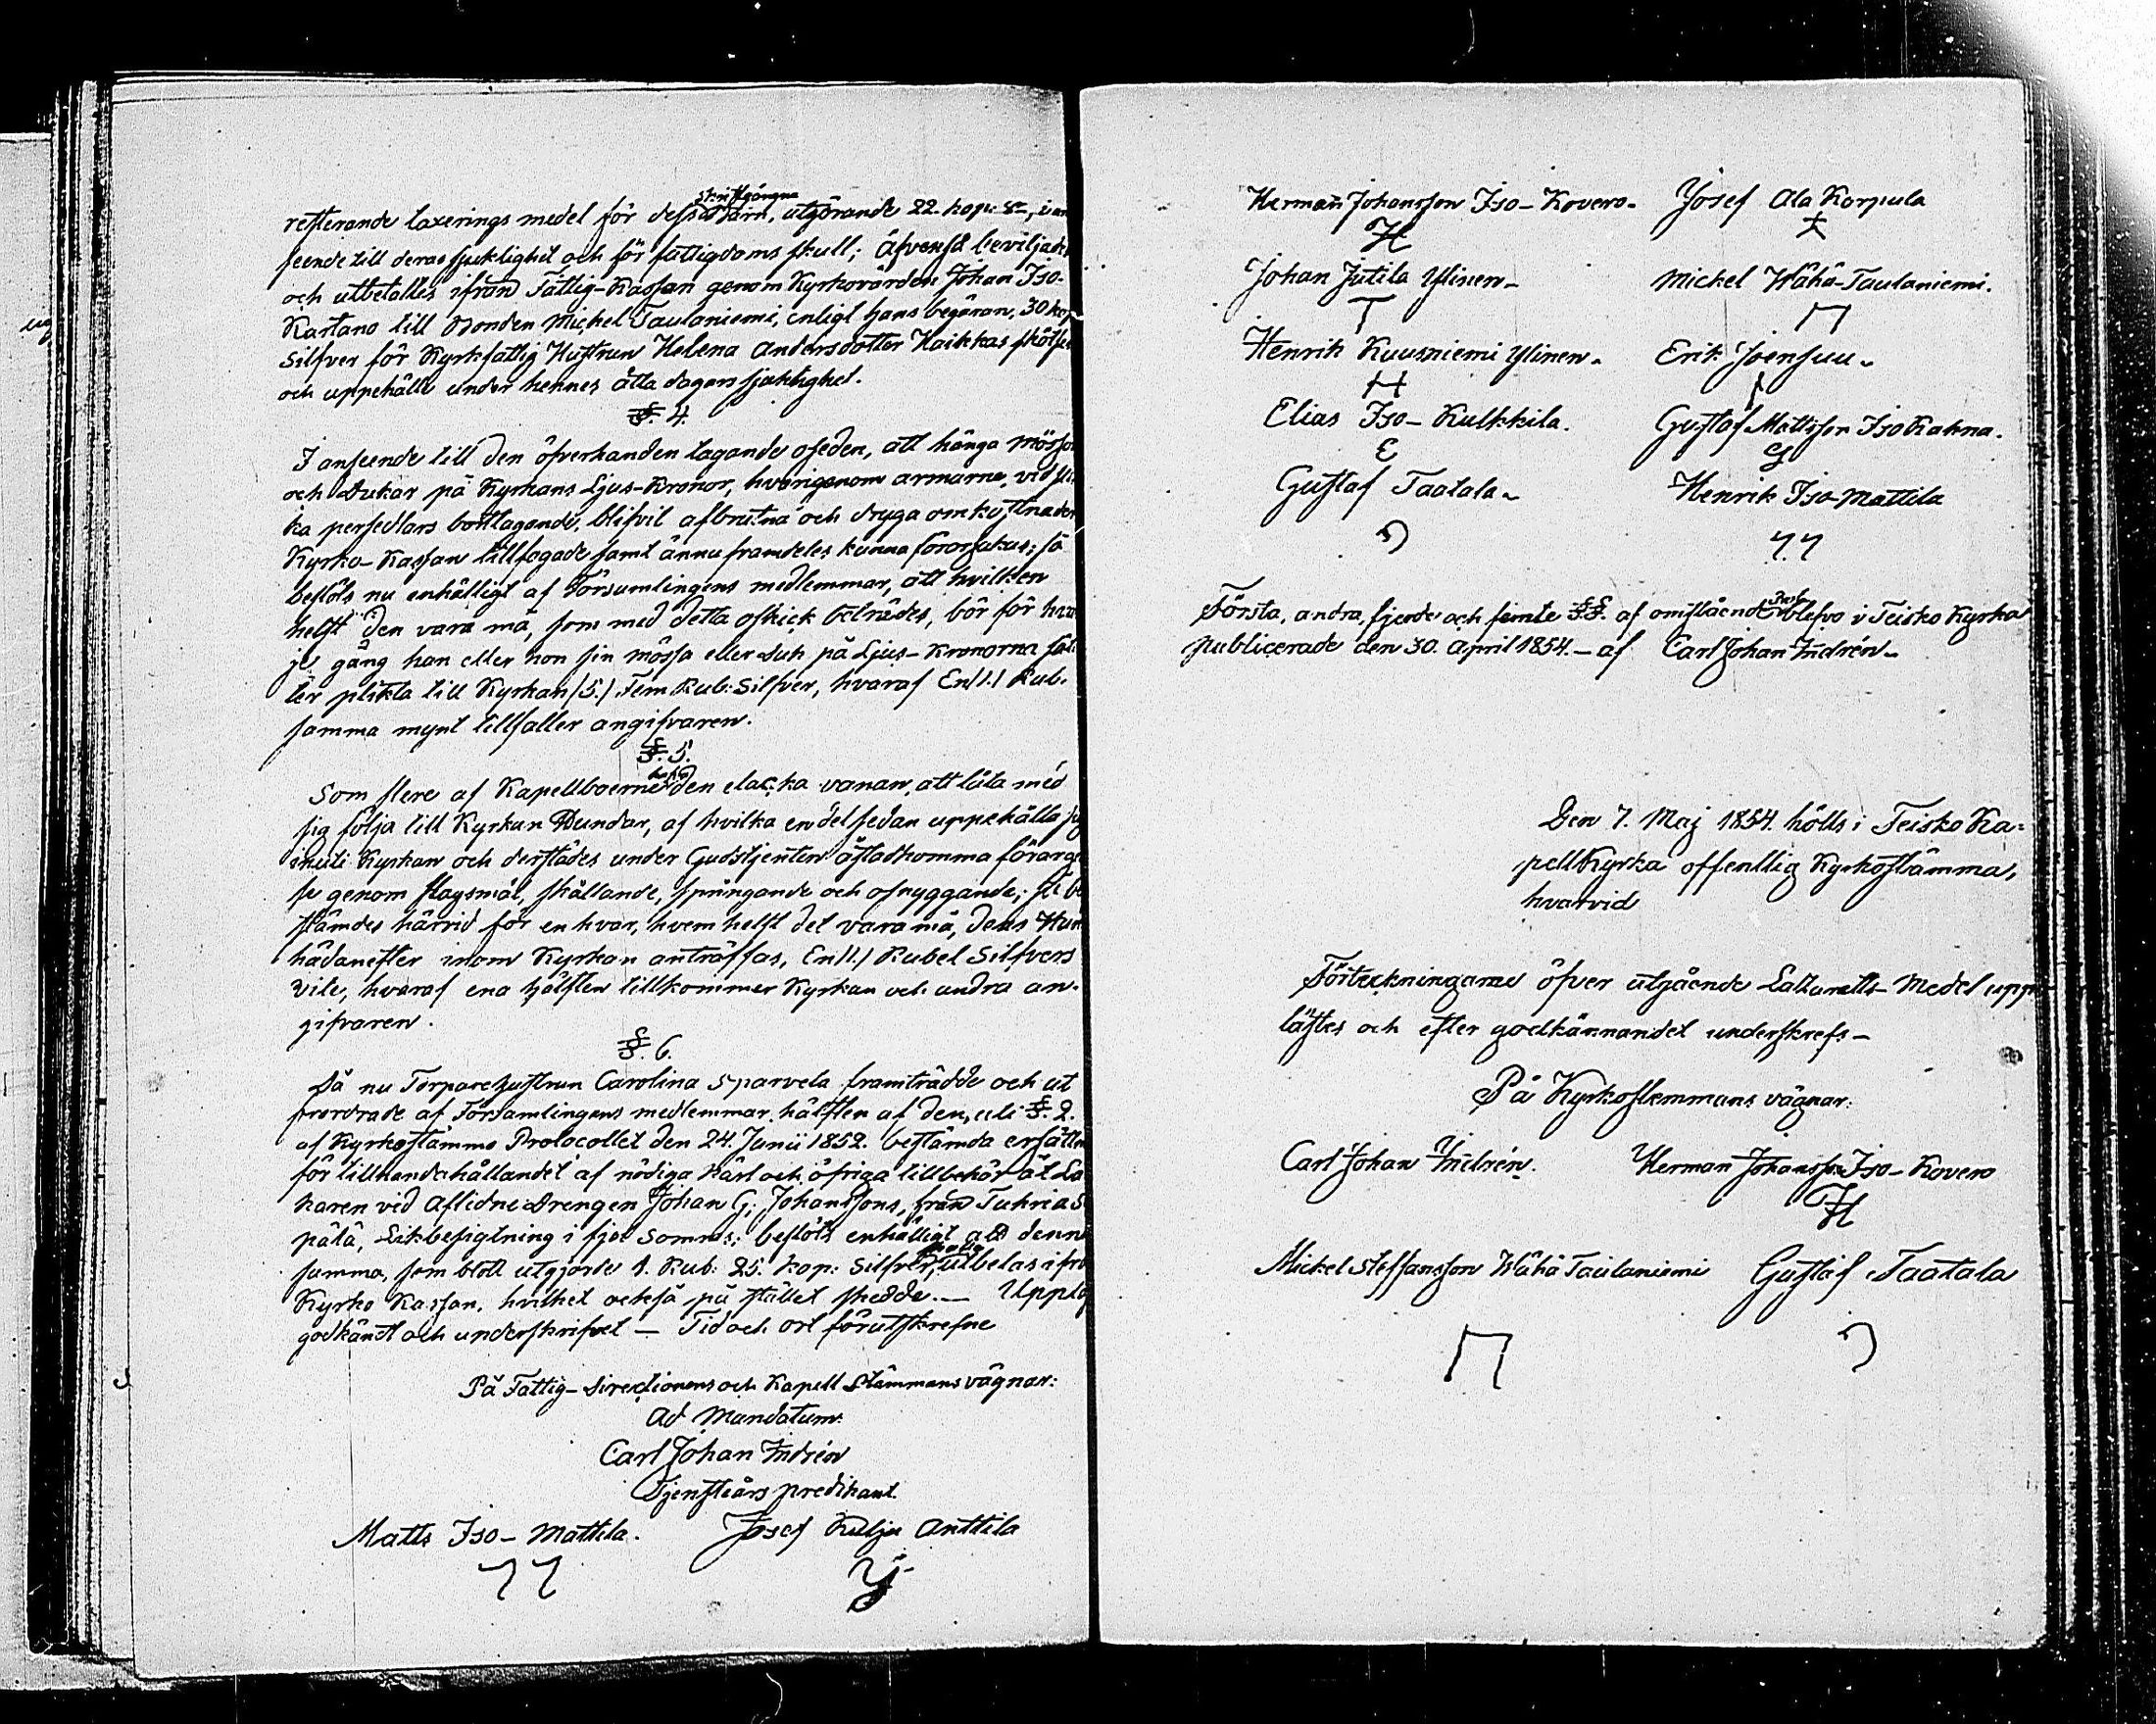 resterande laxerings medel för dessa skriftgångna barn, utgörande 22. kop: S:r, i an
seende till deras sjuklighet och för fattigdoms skull; äfvenså beviljades
och utbetaltes ifrån Fattig-Kassan genom Kyrkovärden Johan Iso-
Kartano till Bonden Michel Taulaniemi, enligt hans begäran, 30 kop
Silfver för Kyrkfattig Hustrun Helena Andersdotter Haikkas skötsel
och uppehälle under hennes åtta dagars sjuklighet.
§. 4.
I anseende till den öfverhanden tagande oseden, att hänga mössor
och Dukar på Kyrkans Ljus-Kronor, hvarigenom armarne, vid sli
ka persedlars borttagande, blifvit afbrutna och dryga omkostnader
Kyrko-Kassan tillfogade samt ännu framdeles kunna förorsakas; så
beslöts nu enhälligt af Församlingens medlemmar, att hvilken
helst den vara må, som med detta oskick beträdes, bör för hvar
je gång han eller hon sin mössa eller duk på Ljus-Kronorna sät
ter plikta till Kyrkan (5.) Fem Rub: Silfver, hvaraf En (1.) Rub.
samma mynt tillfaller angifvaren.
§. 5.
Som flere af Kapellboerne hafva den elacka vanan, att låta med
sig följa till Kyrkan Hundar, af hvilka en del sedan uppehålla sig
inuti Kyrkan och derstädes under Gudstjensten åstadkomma förargel
se genom slagsmål, skällande, springande och osnyggande; så be
stämdes härvid för en hvar, hvem helst det vara må, dess Hund
hädanefter inom Kyrkan anträffas, En (1.) Rubel Silfvers
vite, hvaraf ena hälften tillkommer Kyrkan och andra an-
gifvaren.
§. 6.
Då nu Torparehustrun Carolina Sparvela framträdde och ut
fordrade af Församlingens medlemmar hälften af den, uti §. 2.
af Kyrkostämmo Protocollet den 24. Junii 1852. bestämda ersättn
för tillhandahållandet af nödiga Kärl och öfriga tillbehör åt Lä
karen vid aflidne Drengen Johan G: Johanssons, från Tuhria S
pälä, Likbesigtning i fjol Sommar; beslöts enhälligt att denna
samma, som blott utgjorde 1. Rub: 25. Kop: Silfver, skulle utbetas ifrå
Kyrko Kassan, hvilket också på stället skedde. — Uppläs
godkändt och underskrifvet — Tid och ort förutskrefne
På Fattig-Directionens och Kapell Stämmans vägnar:
Ad Mandatum:
Carl Johan Indrén
Tjensteårs predikant.
Matts Iso-Mattila. Josef Kulju Anttila
Herman Johansson Iso-Kovero. Josef Ala Korpula
H
Johan Jutila Ylinen. Mickel Wähä-Taulaniemi.
T
Henrik Kuusniemi Ylinen. Erik Joensuu.
H
Elias Iso-Kulkkila. Gustaf Mattsson Iso Kahna.
E G
Gustaf Taatala. Henrik Iso-Mattila
Första, andra, fjerde och femte §§. af omstående Prot. blefvo i Teisko Kyrka
publicerade den 30. April 1854. — af Carl Johan Indrén.
Den 7. Maj 1854. hölls i Teisko Ka=
pellkyrka offentlig Kyrkostämma,
hvarvid
Förteckningarne öfver utgående Lazaretts-Medel upp
lästes och efter godkännandet underskrefs —
På Kyrkostemmans vägnar:
Carl Johan Indrén. Herman Johansson Iso-Kovero
H
Mickel Steffansson Wähä Taulaniemi Gustaf Taatala